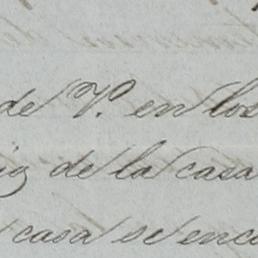 de V. en los
io de la casa
casa se enco